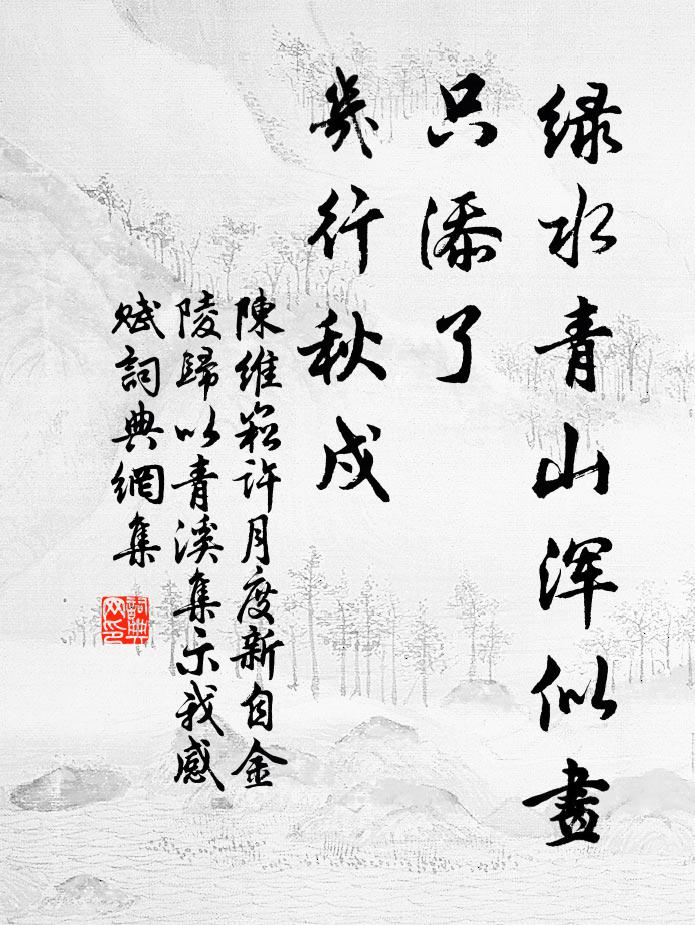 绿水青山浑似畫
只添了
幾行秋戍
陳維崧許月度新自金
陵歸以青溪集示我感
赋詞典網集
詞典
网印